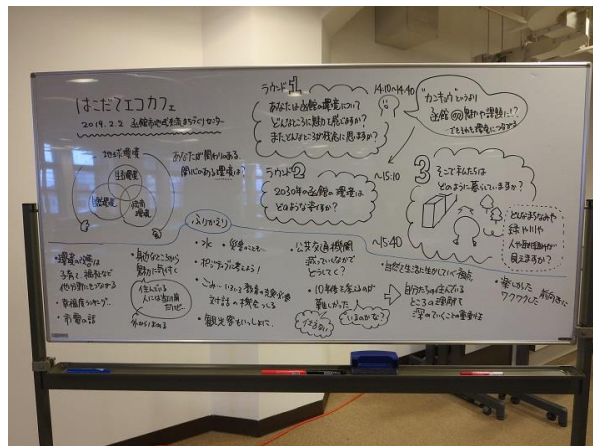 はこだてエコカフェ
2019.2.2 函館市地域交流まちづくりセンター
地球環境
生活環境
自然環境
あなたが関わりのある
関心のある環境は?
ラウンド1
14:10~14:40
あなたは函館の環境について
どんなところに魅力を感じますか?
またどんなところが残念に思いますか?
"カンキョウ"というより
函館の魅力や課題に!?
でもそれも環境につながる
ラウンド2
~15:10
2030年の函館の環境は
どのような幸せか?
3
そこで私たちは
どのように暮らしていますか?
どんなまちなみや
緑や川や
人や動植物が
見えますか?
~15:40
ふりかえり
・環境の大事さは
子育て、福祉など
他分野にもつながる
・幸福度ランキング…
・市電の話
・身近なところから
魅力に気付く
住んでいる
人には当たり前
だけど
外からほめる
・水
・従来のことも…
・ポジティブに考えよう!
・ごみ…
・観光客もいっしょに…
・公共交通機関
減っていくなかで
どうしてく?
・10年後を考えるのが
難しかった
イミない
いるのかな?
・自然を生活に生かしていく視点
自分たちの住んでいる
ところの理解を
深めていくことの重要性
・楽しかった
ワクワクした
前向きに